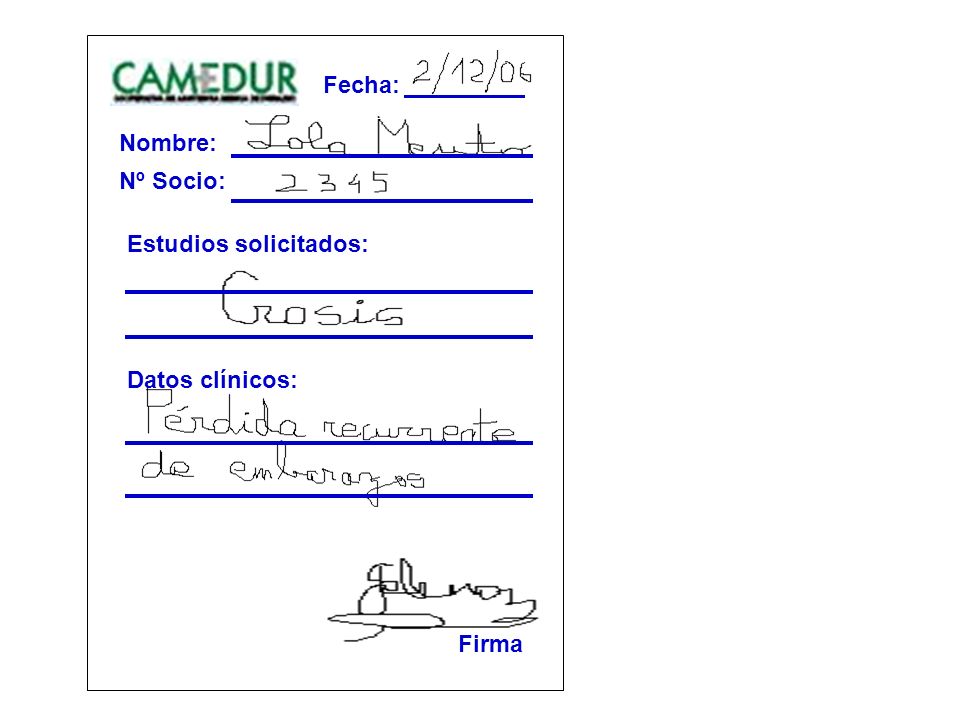 CAMEDUR
Fecha: 2/12/06
Nombre: Lola Mento
Nº Socio: 2345
Estudios solicitados:
Crosis
Datos clínicos:
Pérdida recurrente
de embarazos
Firma